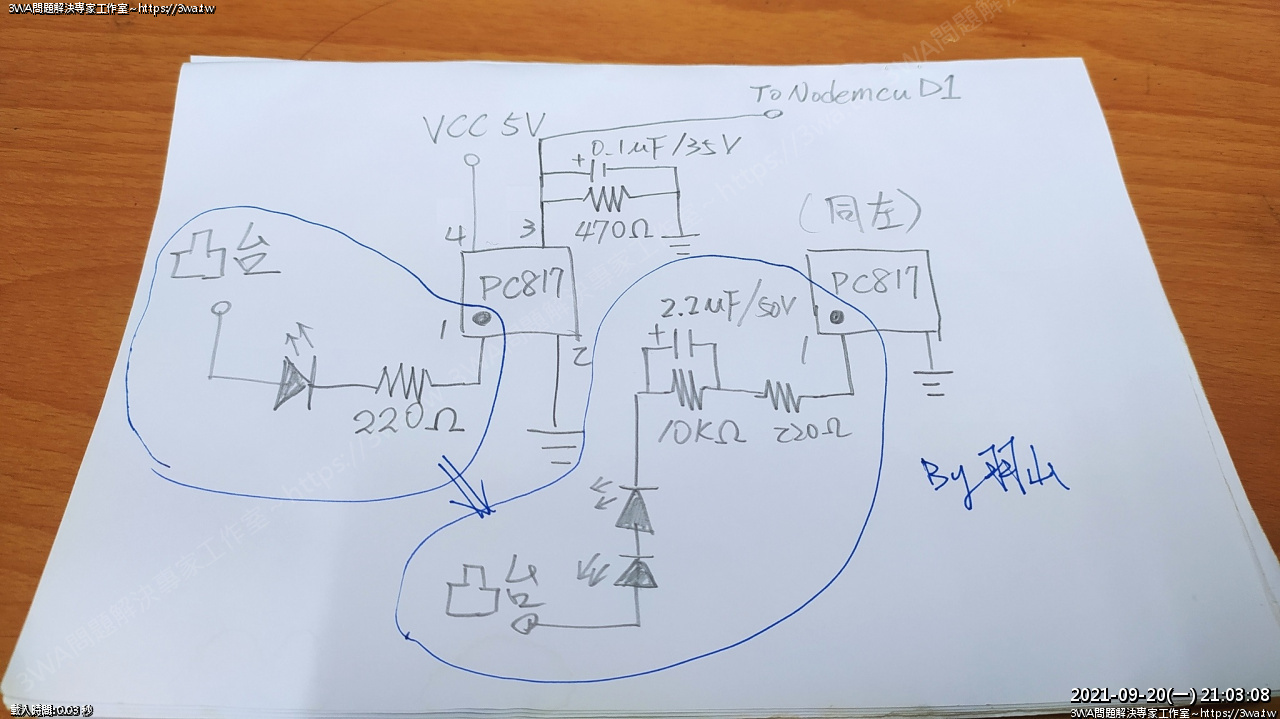 3WA問題解決專家工作室~https://3wa.tw
To Nodemcu D1
VCC 5V
0.1uF/35V
+
470Ω
4
3
PC817
1
2
凸台
220Ω
(同左)
PC817
1
2.2uF/50V
+
10KΩ
220Ω
凸台
By 羽山
2021-09-20(一) 21:03:08
載入時間:0.03 秒
3WA問題解決專家工作室~https://3wa.tw